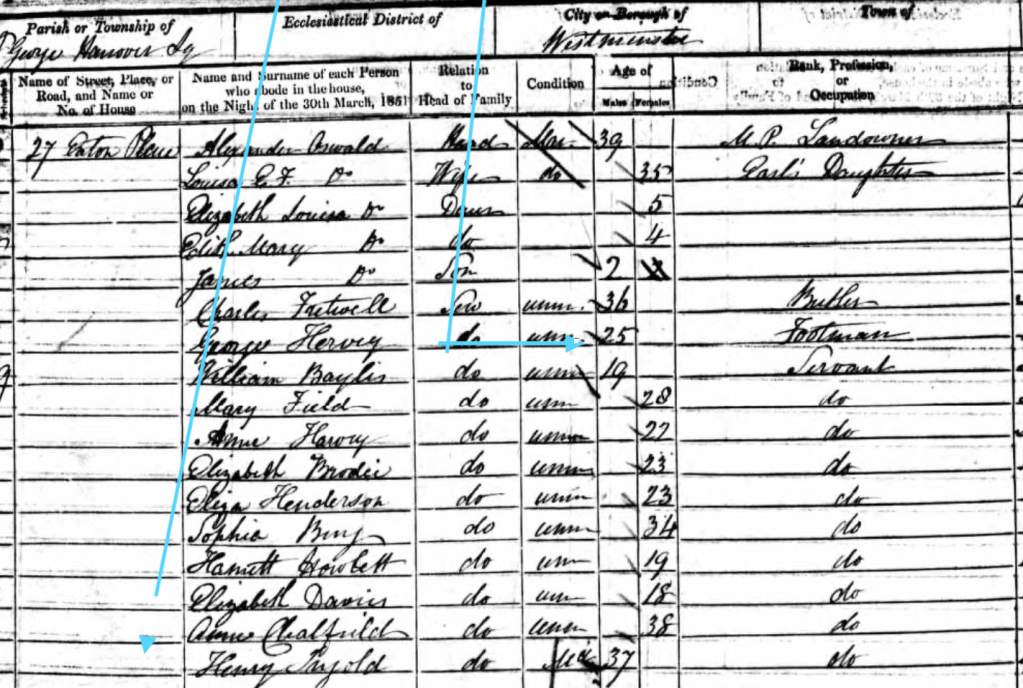 Parish or Township of Ecclesiastical District of City or Borough of Town of
George Hanover Sq Westminster
Name of Street, Place, or Road, and Name or No. of House
Name and Surname of each Person who abode in the house, on the Night of the 30th March, 1851
Relation to Head of Family
Condition
Age of
Males Females
Rank, Profession, or Occupation
27 Eaton Place Alexander Oswald Head Mar 39 M.P. Landowner
Louisa E. F. Do Wife do 35 Earl's Daughter
Elizabeth Louisa Do Daur 5
Edith Mary Do do 4
James Do Son 2
Charles Fretwell Serv unm. 36 Butler
George Hervey do unm 25 Footman
William Baylis do unm 19 Servant
Mary Field do unm 28 do
Annie Harvey do unm 22 do
Elizabeth Brodie do unm 23 do
Eliza Henderson do unm 23 do
Sophia do unm 34 do
Harriett Howlett do unm 19 do
Elizabeth Davies do unm 18 do
Annie Chalfield do unm 38 do
Henry do 37 do